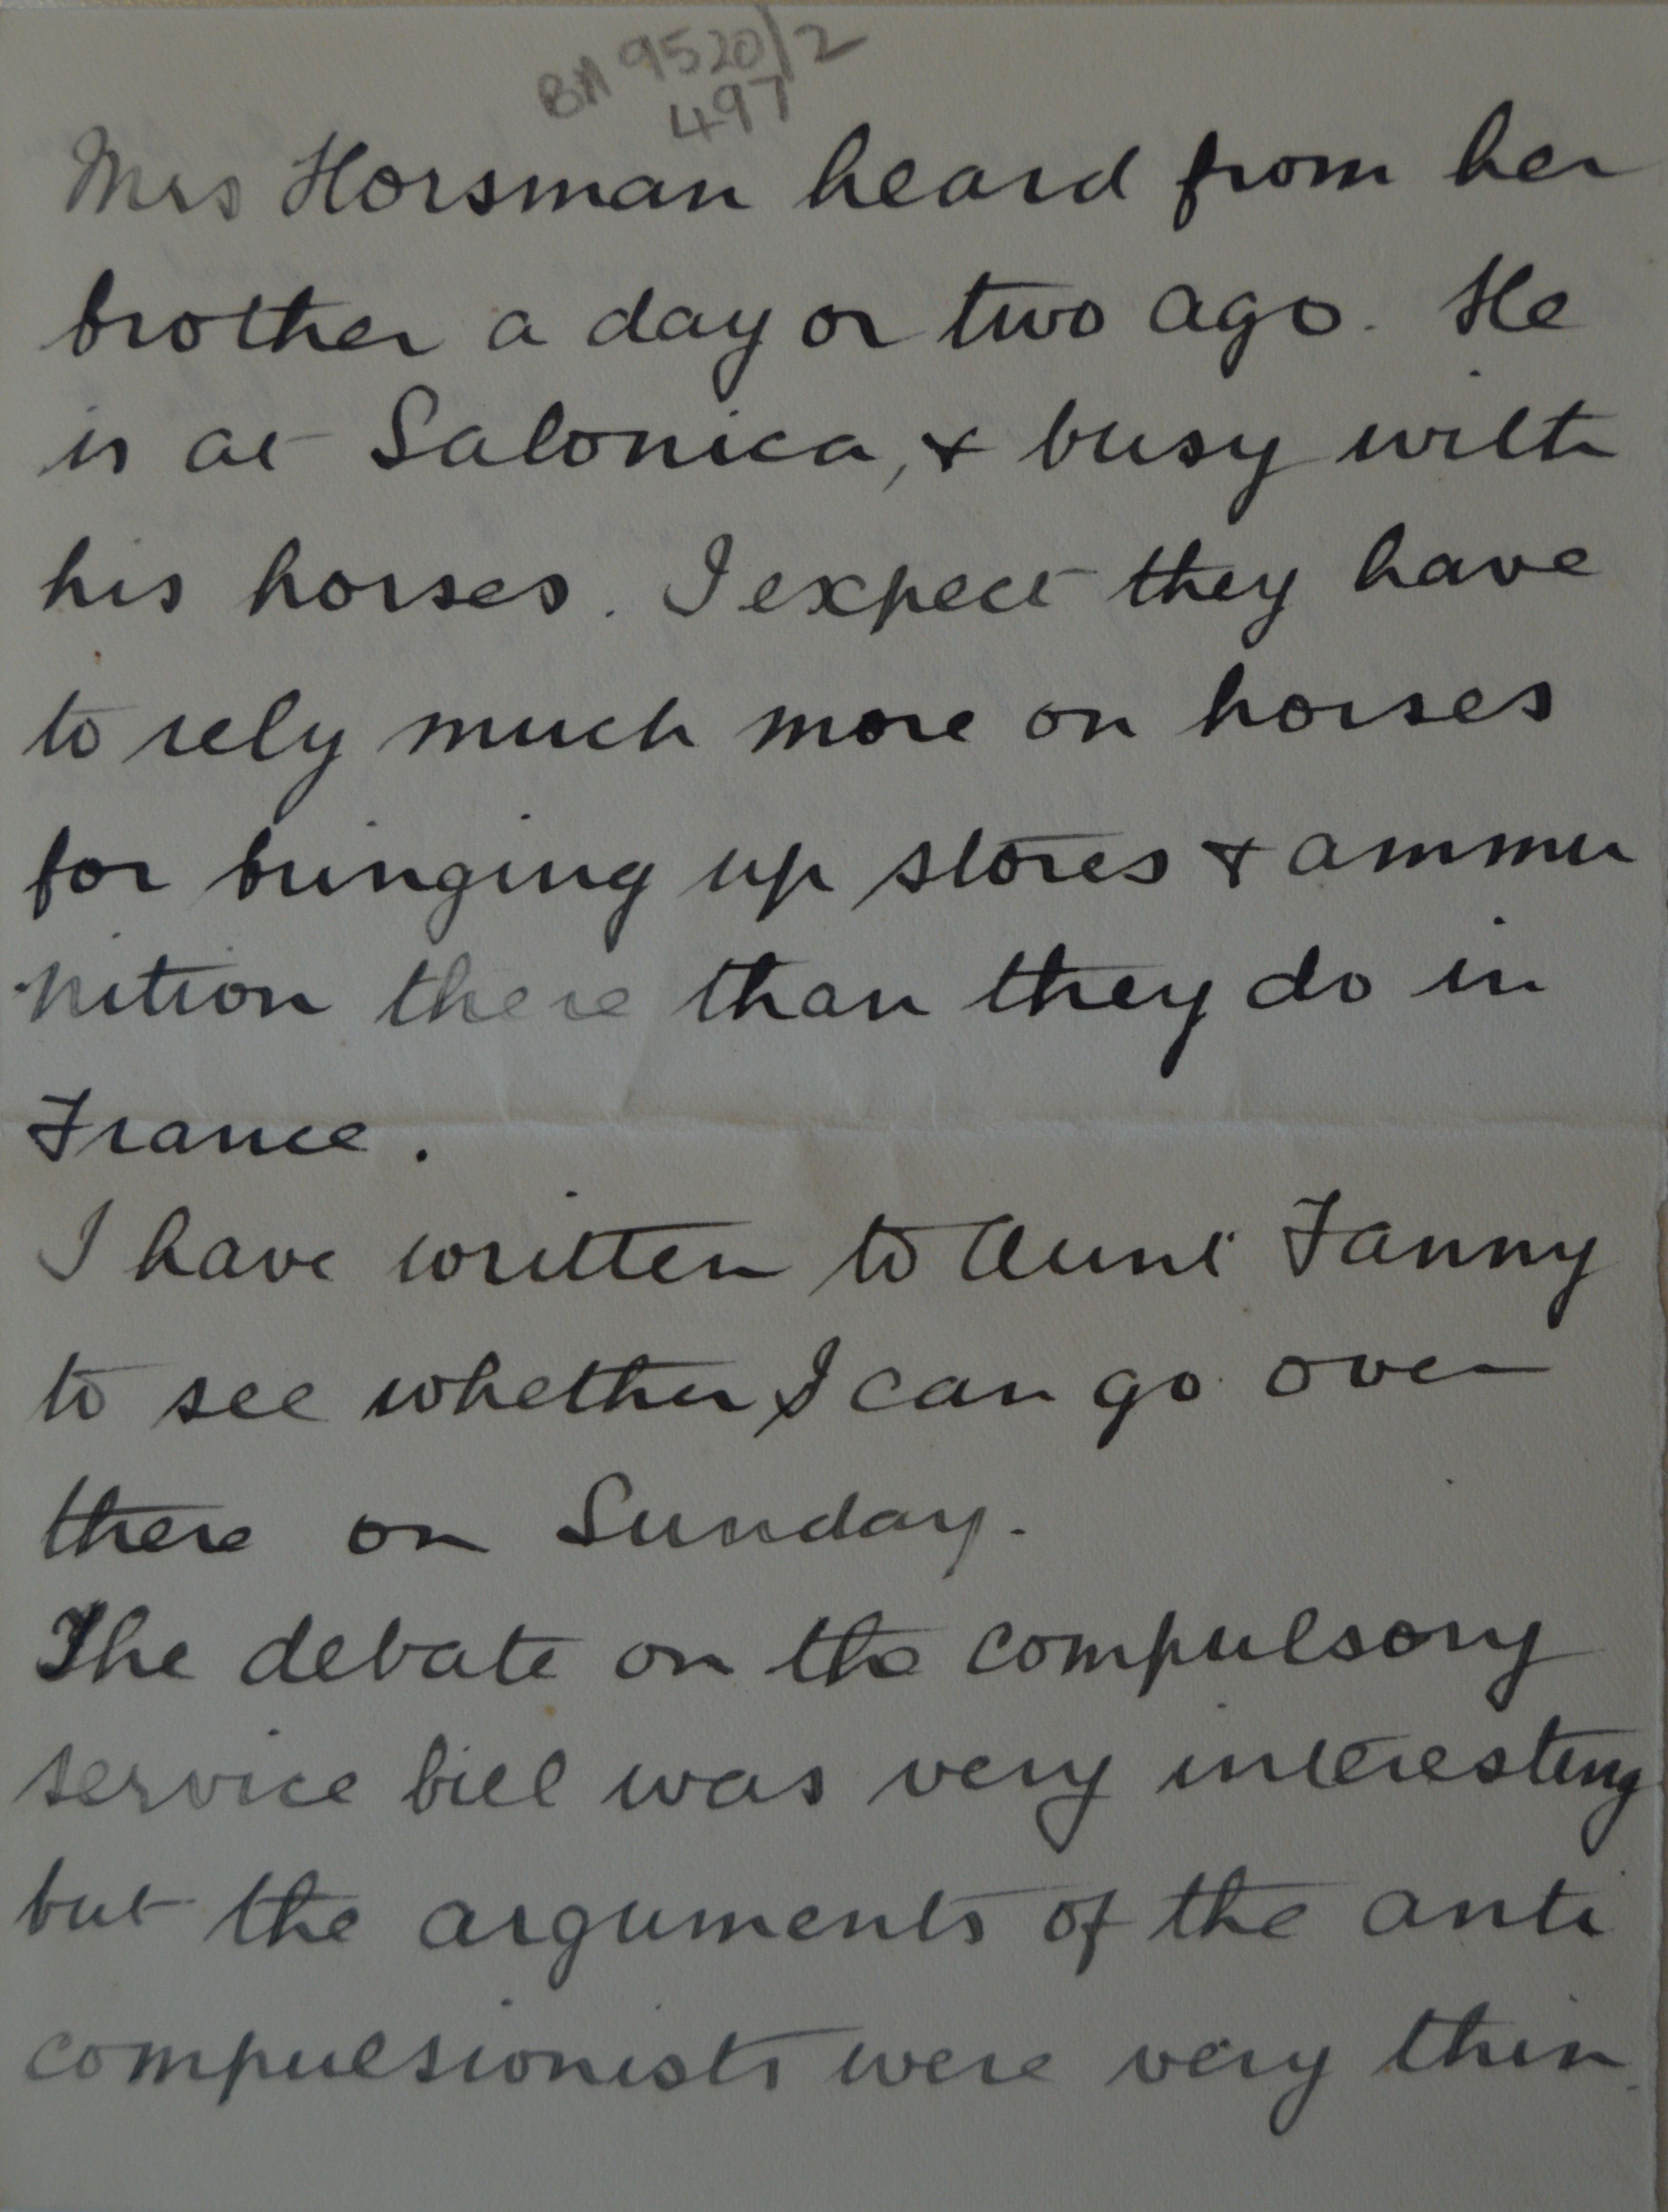 BM 9520/2
497
Mrs Horsman heard from her
brother a day or two ago. He
is at Salonica, & busy with
his horses. I expect they have
to rely much more on horses
for bringing up stores & ammu
nition there than they do in
France.
I have written to Aunt Fanny
to see whether I can go over
there on Sunday.
The debate on the compulsory
service bill was very interesting
but the arguments of the anti
compulsionists were very thin.